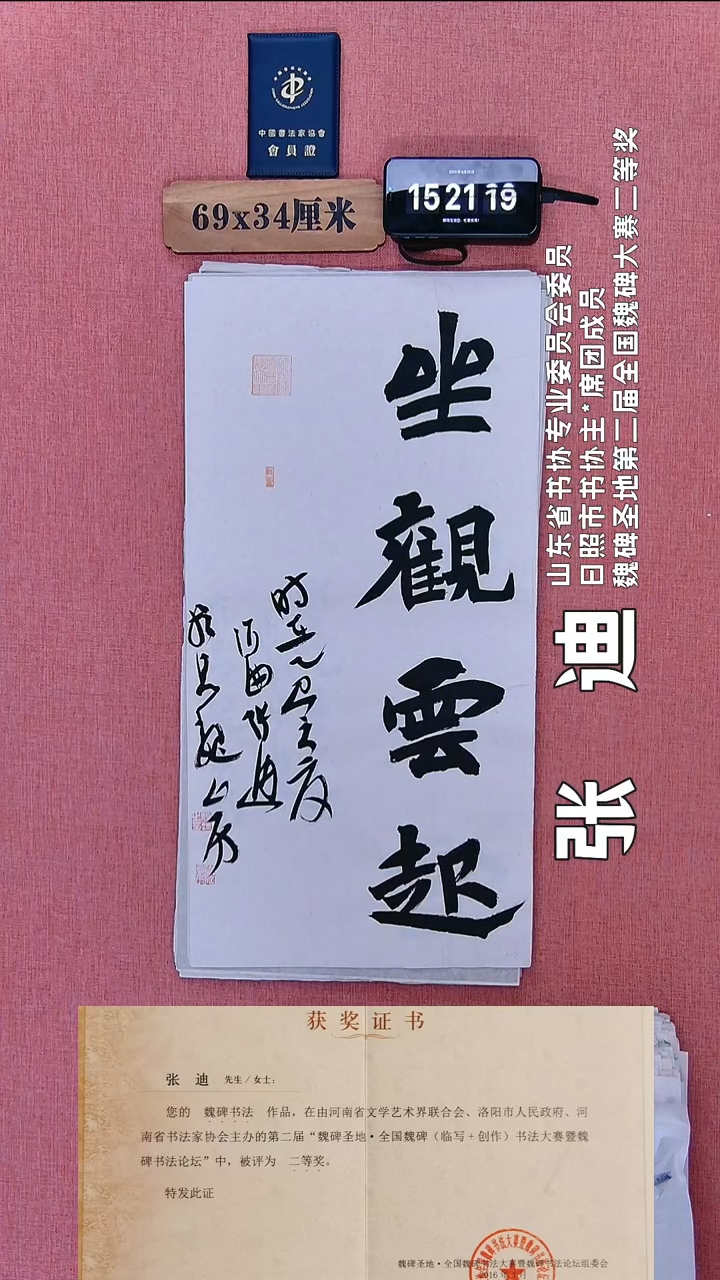 中國書法家協會
會員證
69x34厘米
15 21 19
坐觀雲起
山东省书协专业委员会委员
日照市书协主*席团成员
魏碑圣地第二届全国魏碑大赛二等奖
张 迪
获奖证书
张 迪 先生/女士:
您的 魏碑书法 作品，在由河南省文学艺术界联合会、洛阳市人民政府、河
南省书法家协会主办的第二届“魏碑圣地·全国魏碑（临写+创作）书法大赛暨魏
碑书法论坛”中，被评为 二等奖。
特发此证
魏碑圣地·全国魏碑书法大赛暨魏碑书法论坛组委会